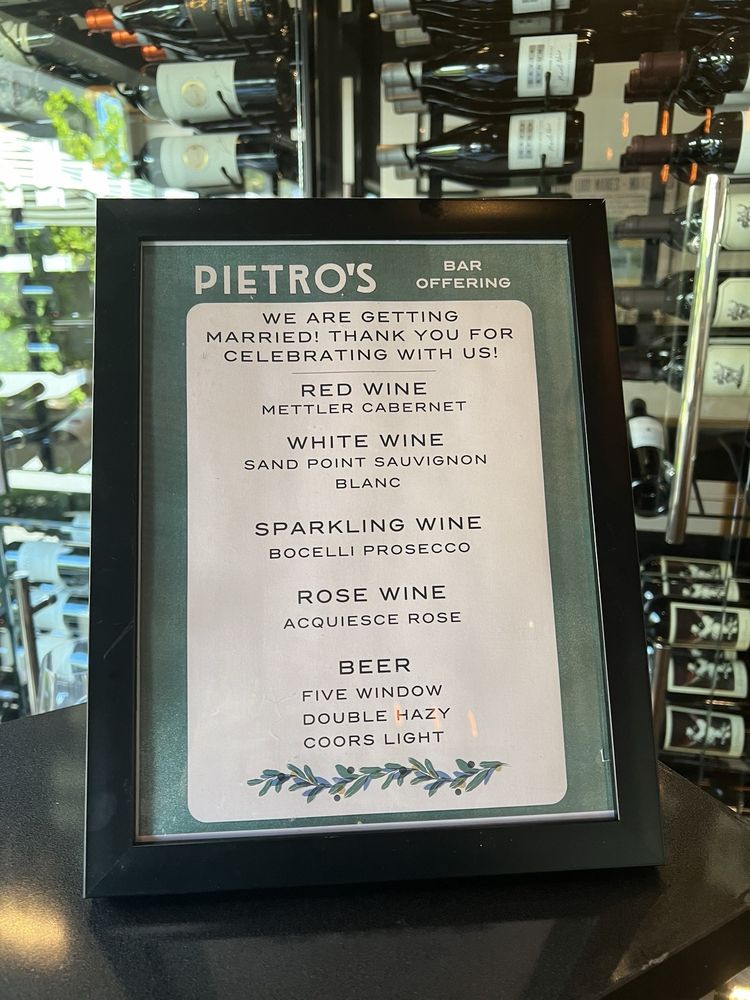 PIETRO'S
BAR
OFFERING
WE ARE GETTING
MARRIED! THANK YOU FOR
CELEBRATING WITH US!
RED WINE
METTLER CABERNET
WHITE WINE
SAND POINT SAUVIGNON
BLANC
SPARKLING WINE
BOCELLI PROSECCO
ROSE WINE
ACQUIESCE ROSE
BEER
FIVE WINDOW
DOUBLE HAZY
COORS LIGHT